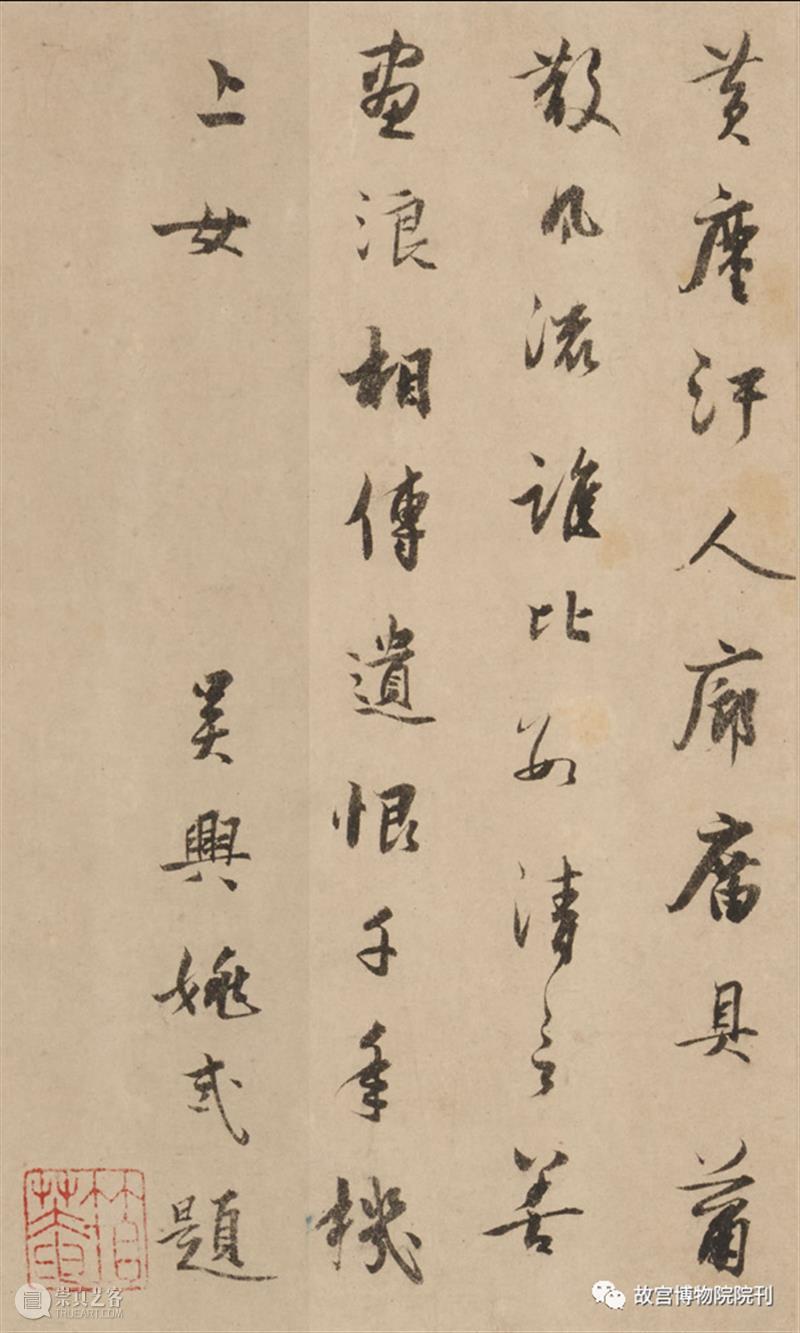 黄塵汙人廊庿具蕭
散風流誰比數清言善
畫浪相傳遺恨千年機
上女
吳興姚式題
崇真艺客
TRUEART.COM
故宫博物院院刊